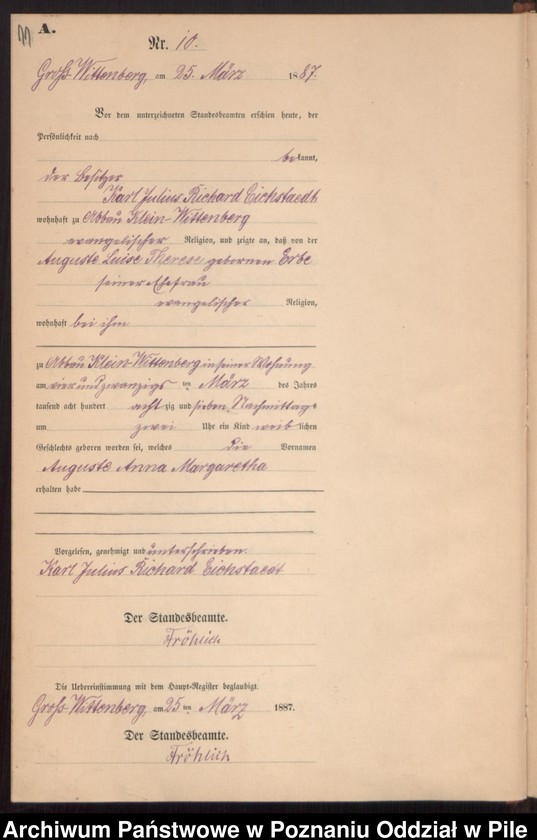 A.
Nr. 10.
Groß-Wittenberg, am 25. März 1887.
Vor dem unterzeichneten Standesbeamten erschien heute, der
Persönlichkeit nach
bekannt,
der Besitzer
Karl Julius Richard Eichstaedt
wohnhaft zu Abbau Klein-Wittenberg
evangelischer Religion, und zeigte an, daß von der
Auguste Luise Therese geborenen Erbe
seiner Ehefrau
evangelischer Religion,
wohnhaft bei ihm
zu Abbau Klein-Wittenberg in seiner Wohnung
am vier und zwanzigs ten März des Jahres
tausend acht hundert acht zig und sieben, Nachmittags
um zwei Uhr ein Kind weib lichen
Geschlechts geboren worden sei, welches die Vornamen
Auguste Anna Margaretha
erhalten habe
Vorgelesen, genehmigt und unterschrieben.
Karl Julius Richard Eichstaedt
Der Standesbeamte.
Fröhlich
Die Uebereinstimmung mit dem Haupt-Register beglaubigt.
Groß-Wittenberg, am 25 ten März 1887.
Der Standesbeamte.
Fröhlich
Archiwum Państwowe w Poznaniu Oddział w Pile